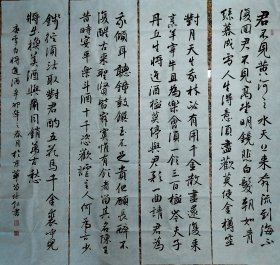 君不見黄河之水天上来奔流到海不
復回君不見高堂明鏡悲白髮朝如青
絲暮成雪人生得意須盡歡莫使金樽空
對月天生我材必有用千金散盡還復来
烹羊宰牛且為樂會須一飲三百杯岑夫子
丹丘生将進酒杯莫停與君歌一曲請君為
我傾耳聽鐘鼓饌玉不足貴但願長醉不
復醒古来聖賢皆寂寞惟有飲者留其名陳王
昔時宴平樂斗酒十千恣歡謔主人何為言少
錢徑須沽取對君酌五花馬千金裘呼兒
将出換美酒與爾同銷萬古愁
李白将進酒辛卯年春月於書